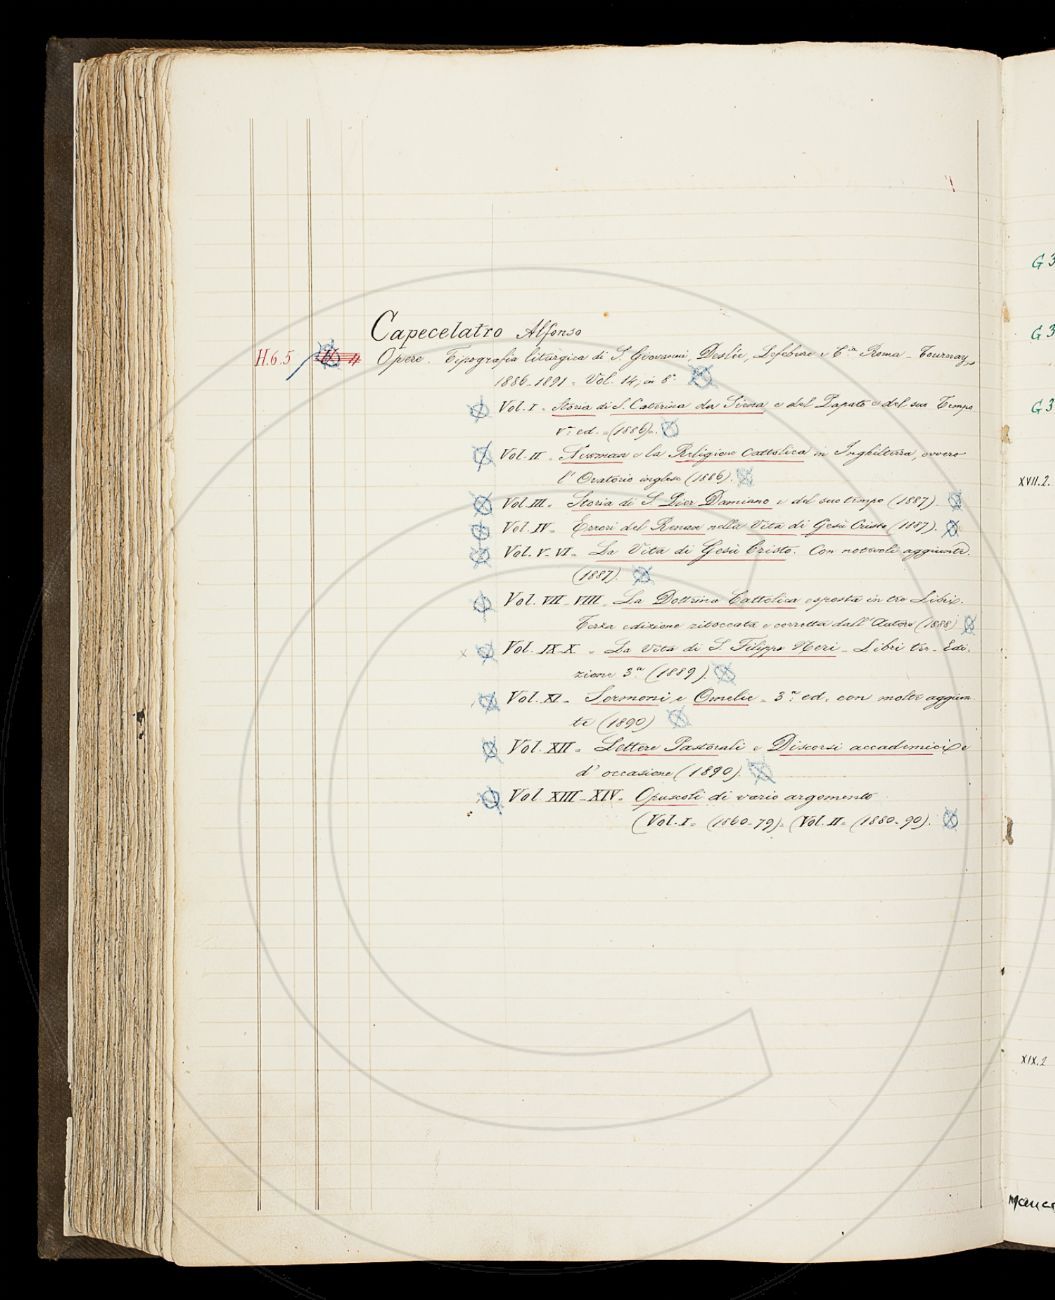 Capecelatro Alfonso
H.6.5 Opere. Tipografia liturgica di S. Giovanni, Desclée, Lefebvre e C.ia Roma - Tournay,
1886-1891 - Vol. 14, in 8.°
Vol. I - Storia di S. Caterina da Siena e del Papato del suo Tempo
V.a ed. - (1886).
Vol. II - Newman e la Religione Cattolica in Inghilterra, ovvero
l'Oratorio inglese (1886).
Vol. III - Storia di S. Pier Damiano e del suo tempo (1887).
Vol. IV - Errori del Renan nella Vita di Gesù Cristo (1887).
Vol. V-VI - La Vita di Gesù Cristo. Con notevoli aggiunte.
(1887).
Vol. VII-VIII - La Dottrina Cattolica esposta in tre Libri.
Terza edizione ritoccata e corretta dall'Autore (1888)
Vol. IX-X - La Vita di S. Filippo Neri - Libri tre - Edi-
zione 3.a (1889).
Vol. XI - Sermoni e Omelie - 3.a ed. con molte aggiun-
te (1890)
Vol. XII - Lettere Pastorali e Discorsi accademici e
d'occasione (1890).
Vol. XIII-XIV - Opuscoli di vario argomento
(Vol. I - (1860-79) - (Vol. II - (1880-90).
G3
G3
G3
XVII.2.
XIX.2